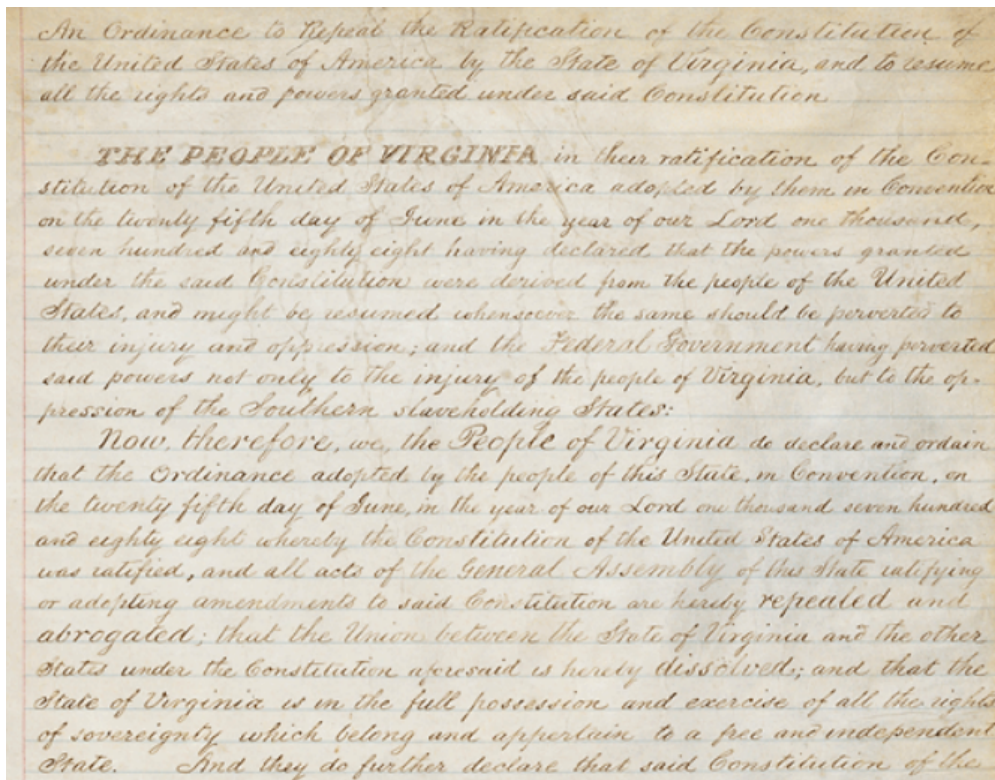 An Ordinance to Repeal the Ratification of the Constitution of
the United States of America by the State of Virginia, and to resume
all the rights and powers granted under said Constitution
THE PEOPLE OF VIRGINIA in their ratification of the Con-
stitution of the United States of America adopted by them in Convention
on the twenty fifth day of June in the year of our Lord one thousand,
seven hundred and eighty eight having declared that the powers granted
under the said Constitution were derived from the people of the United
States, and might be resumed whensoever the same should be perverted to
their injury and oppression; and the Federal Government having perverted
said powers not only to the injury of the people of Virginia, but to the op-
pression of the Southern slaveholding States:
Now, therefore, we, the People of Virginia do declare and ordain
that the Ordinance adopted by the people of this State, in Convention, on
the twenty fifth day of June, in the year of our Lord one thousand seven hundred
and eighty eight whereby the Constitution of the United States of America
was ratified, and all acts of the General Assembly of this State ratifying
or adopting amendments to said Constitution are hereby repealed and
abrogated; that the Union between the State of Virginia and the other
States under the Constitution aforesaid is hereby dissolved; and that the
State of Virginia is in the full possession and exercise of all the rights
of sovereignty which belong and appertain to a free and independent
State. And they do further declare that said Constitution of the